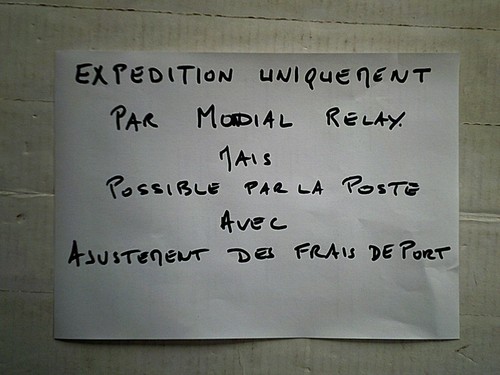 EXPEDITION UNIQUEMENT
PAR MODIAL RELAY.
MAIS
POSSIBLE PAR LA POSTE
AVEC
AJUSTEMENT DES FRAIS DE PORT